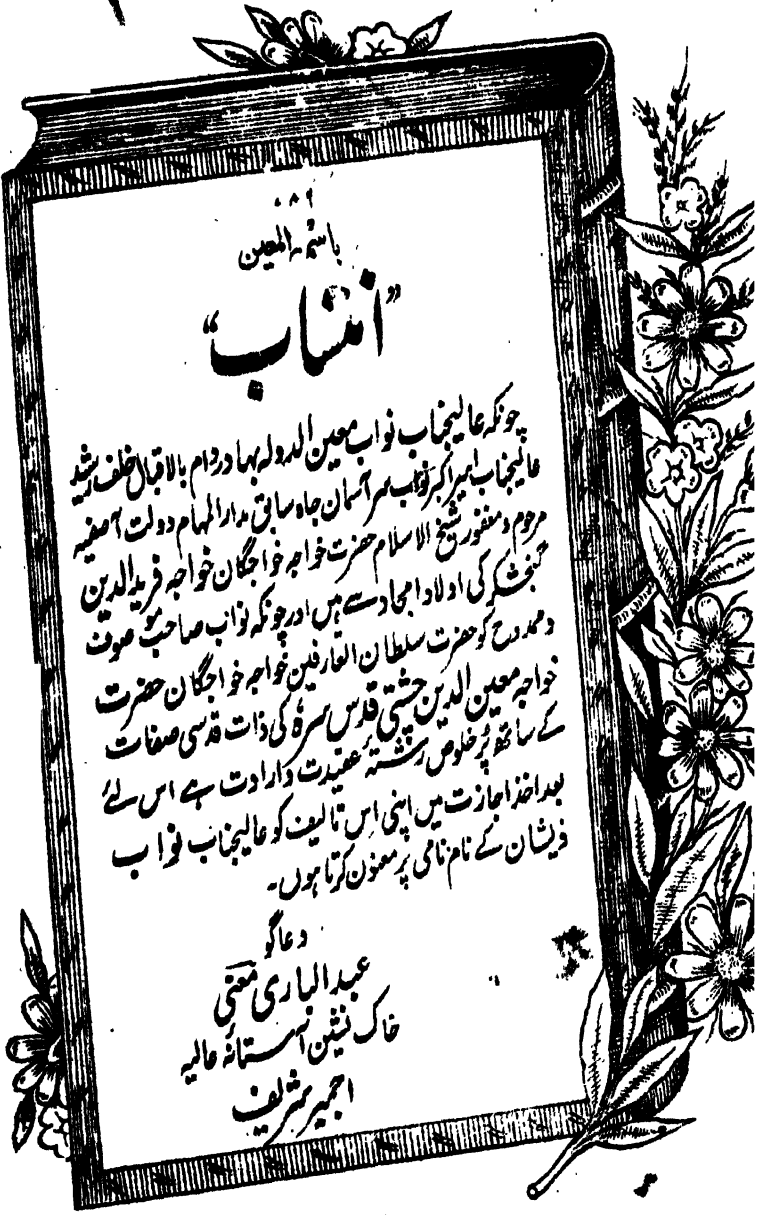 ۷۸۶
باسمہ المعین
"انتساب"
چونکہ عالیجناب نواب معین الدولہ بہادر دام بالاقبال خلف رشید
عالیجناب امیر اکبر نواب سر آسمان جاہ سابق مدار المہام دولت آصفیہ
مرحوم و مغفور شیخ الاسلام حضرت خواجہ خواجگان خواجہ فرید الدین
گنجشکر کی اولاد امجاد سے ہیں اور چونکہ نواب صاحب موصوف
و ممدوح کو حضرت سلطان العارفین خواجہ خواجگان حضرت
خواجہ معین الدین چشتی قدس سرہ کی ذات قدسی صفات
کے ساتھ پُر خلوص رشتۂ عقیدت و ارادت ہے اس لئے
بعد اخذ اجازت میں اپنی اِس تالیف کو عالیجناب نواب
ذیشان کے نام نامی پر معنون کرتا ہوں۔
دعاگو
عبد الباری معنی
خاک نشین آستانۂ عالیہ
اجمیر شریف